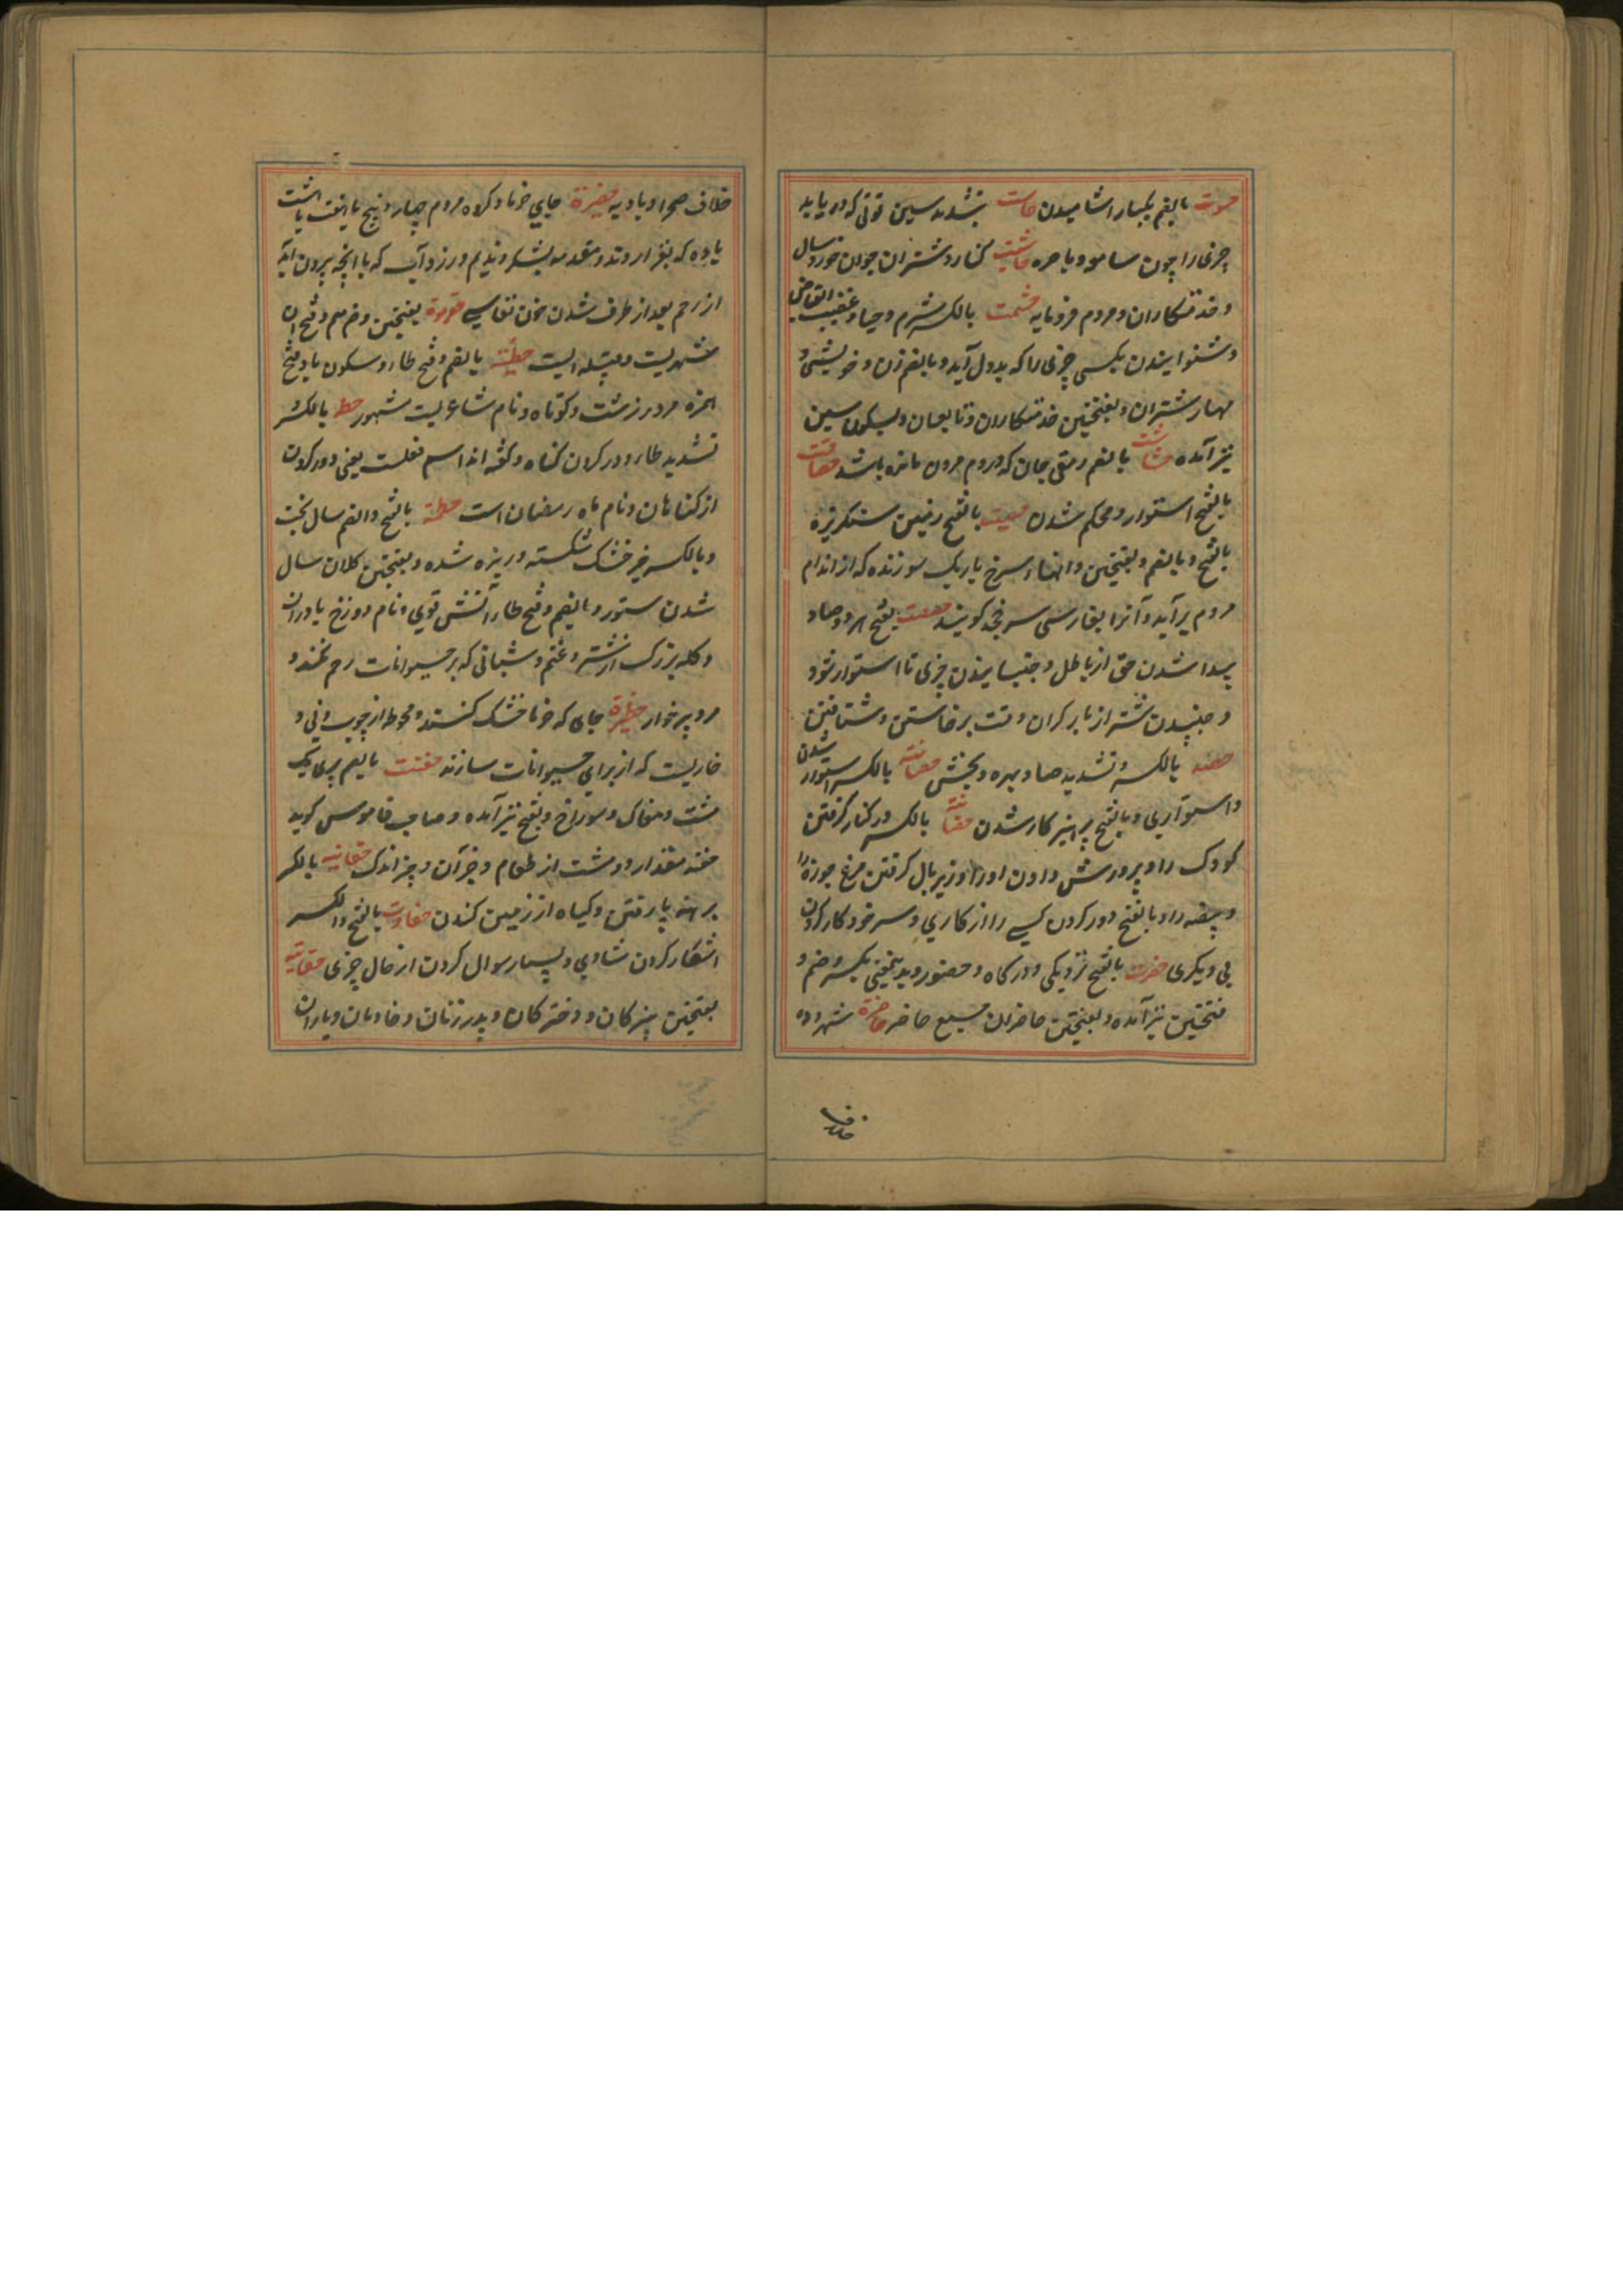 حسوت بالضم یکبار اشامیدن حاست بتشدید سین قوتی که دریابد
چیزی را چون سامعه و باصره حاشیت کنار و شتران جوان خوردسال
و خدمتکاران و مردم فرومایه حشمت بالکسر شرم و حیا و غضب انقباض
و شنوانیدن بکسی چیزی را که بدول آید و بالضم زن و خویشی و
مهار شتران و بفتحتین خدمتکاران و تابعان و بسکون سین
نیز آمده حشاشت بالضم رمق جان که در وم مردن مانده باشد حصافت
بالفتح استوار و محکم شدن بالفتح زمین سنکریزه
بالفتح و بالضم و بفتحتین دانهاء سرخ باریک سوزنده که از اندام
مردم برآید و آنرا بفارسی سرخجه کویند بفتح هر دو صاد
پیدا شدن حق از باطل و جنبانیدن چیزی تا استوار شود
و جنبیدن شتر از بار کران وقت برخاستن و شتافتن
حصه بالکسر و تشدید صاد بهره و بخش حصانت بالکسر استوار شدن
و استواری و بالفتح پرهیز کار شدن حضانت بالکسر در کنار کرفتن
کودک را و پرورش دادن او را و زیر بال کرفتن مرغ جوزه را
و بیضه را و بالفتح دور کردن کسی را از کاری و سرخود کار کردن
بی دیکری حضرت بالفتح نزدیکی و درکاه و حضور و بدینمعنی بکسر و ضم و
فتحتین نیز آمده و بفتحتین حاضران جمع حاضر حاضرة شهر و ده
خلاف
خلاف صحرا و بادیه حضیرة جای خرما و کروه مردم چهار و پنج یا هفت یا هشت
یا ده که بغزا روند و مقدمه لشکر و ندیم و رزد آب که با بچه بیرون آید
از رحم بعد از طرف شدن خون نفاسی بفتحتین و ضم میم و فتح آن
شهریست و قبیله ایست حطیئة بالضم و فتح طا و سکون یا و فتح
همزه مرد زشت و کوتاه و نام شاعریست مشهور حطه بالکسر و
تشدید طا دور کردن کناه و کفته اند اسم فعلست یعنی دور کردن
از کناهان و نام ماه رمضان است حطمة بالفتح و الضم سال سخت
و بالکسر چیز خشک شکسته و ریزه شده و بفتحتین کلان سال
شدن ستور و بالضم و فتح طا آتش قوی و نام دوزخ یا درآن
و کله بزرک از شتر و غنم و شبانی که بر حیوانات رحم نکند و
مرد پرخوار حظیرة جای که خرما خشک کنند و محوطه از چوب و نی و
خاریست که از برای حیوانات سازند حفنت بالضم پری یک
مشت و مغاک و سوراخ و بفتح نیز آمده و صاحب قاموس کوید
حفنه مقدار دو مشت از طعام و جز آن و چیز اندک بالکسر
برهنه پا رفتن و کیاه از زمین کندن حفاوت بالفتح و الکسر
اشکار کردن شادی و بسیار سوال کردن از حال چیزی
بفتحتین پسرکان و دخترکان و پدر زنان و خادمان و یاران